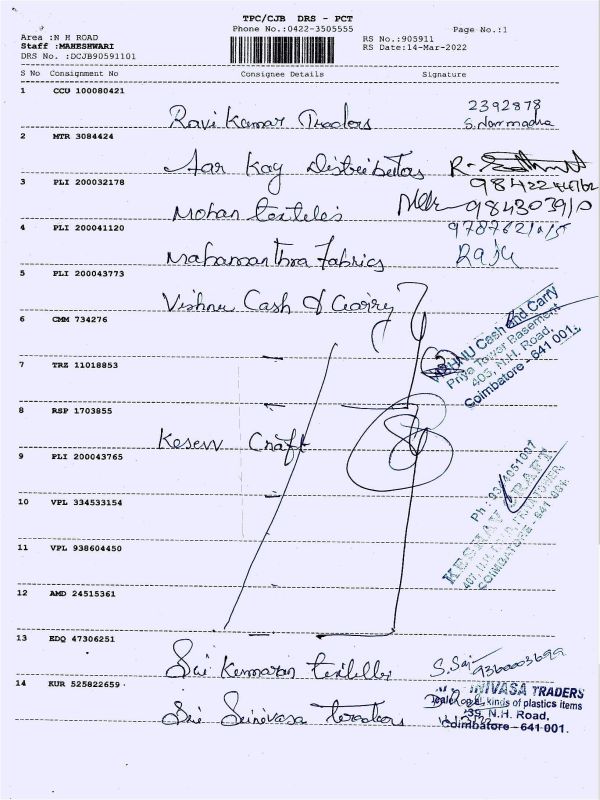 TPC/CJB DRS - PCT
Phone No.:0422-3505555
Page No.:1
Area :N H ROAD
RS No.:905911
Staff :MAHESHWARI
RS Date:14-Mar-2022
DRS No. :DCJB90591101
S No Consignment No Consignee Details Signature
1 CCU 100080421
Ravi Kumar Traders
2392878
S. Narmadha
2 MTR 3084424
Aar Kay Distributors R-
3 PLI 200032178
Mohan textiles
984303910
4 PLI 200041120
Mahamanthra Fabrics Raju
5 PLI 200043773
Vishnu Cash & Carry
VISHNU Cash and Carry
Priya Tower Basement
405, N.H. Road,
Coimbatore - 641 001.
6 CMM 734276
7 TRZ 11018853
8 RSP 1703855
Kesew Craft
9 PLI 200043765
Ph : 9364051007
KESHAV CRAFT
COIMBATORE - 641 001.
10 VPL 334533154
11 VPL 938604450
12 AMD 24515361
13 EDQ 47306251
Sri Kumaran textiles S. Sai 9360003699
14 KUR 525822659
Sri Srinivasa Traders
INIVASA TRADERS
kinds of plastics items
39, N.H. Road,
Coimbatore - 641 001.